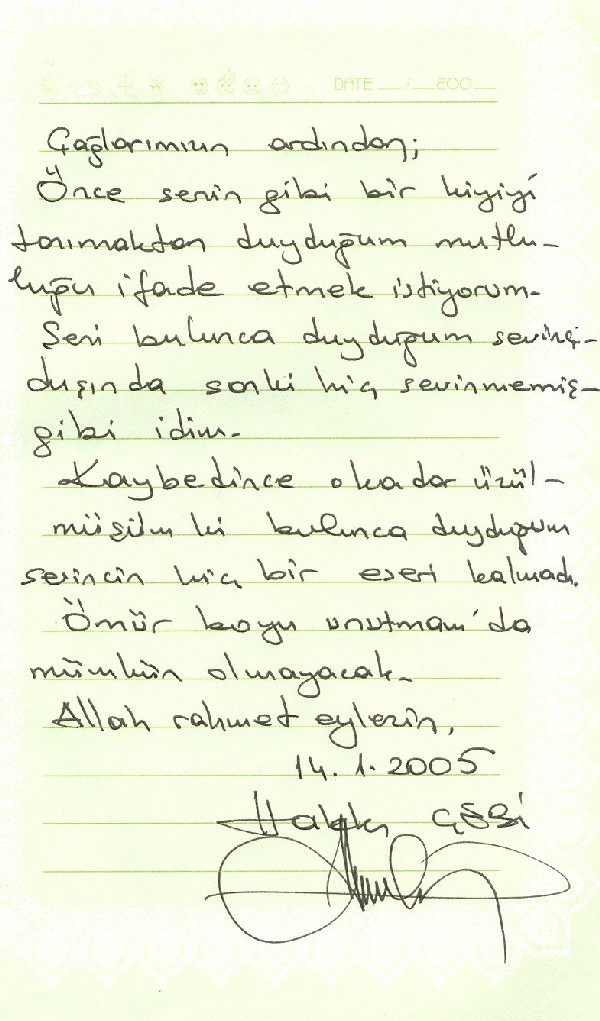 DATE __/__200__
Çağlarımızın ardından;
Önce senin gibi bir kişiyi
tanımaktan duyduğum mutlu-
luğu ifade etmek istiyorum.
Seni bulunca duyduğum sevinç-
dışında sanki hiç sevinmemiş-
gibi idim.
Kaybedince okadar üzül-
müşüm ki bulunca duyduğum
sevincin hiç bir eseri kalmadı.
Ömür boyu unutmam'da
mümkün olmayacak.
Allah rahmet eylesin,
14.1.2005
Hakkı